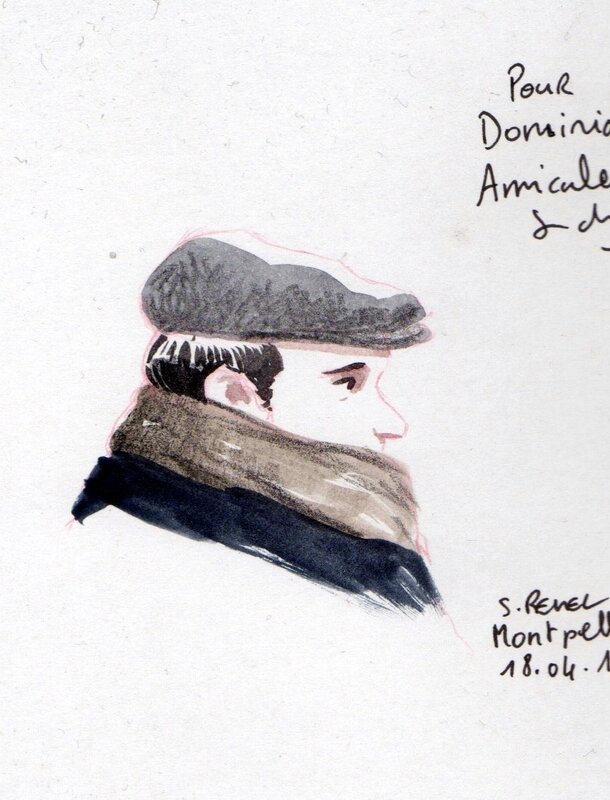 Pour
Dominiq
Amicale
S. REVEL
Montpell
18.04.1